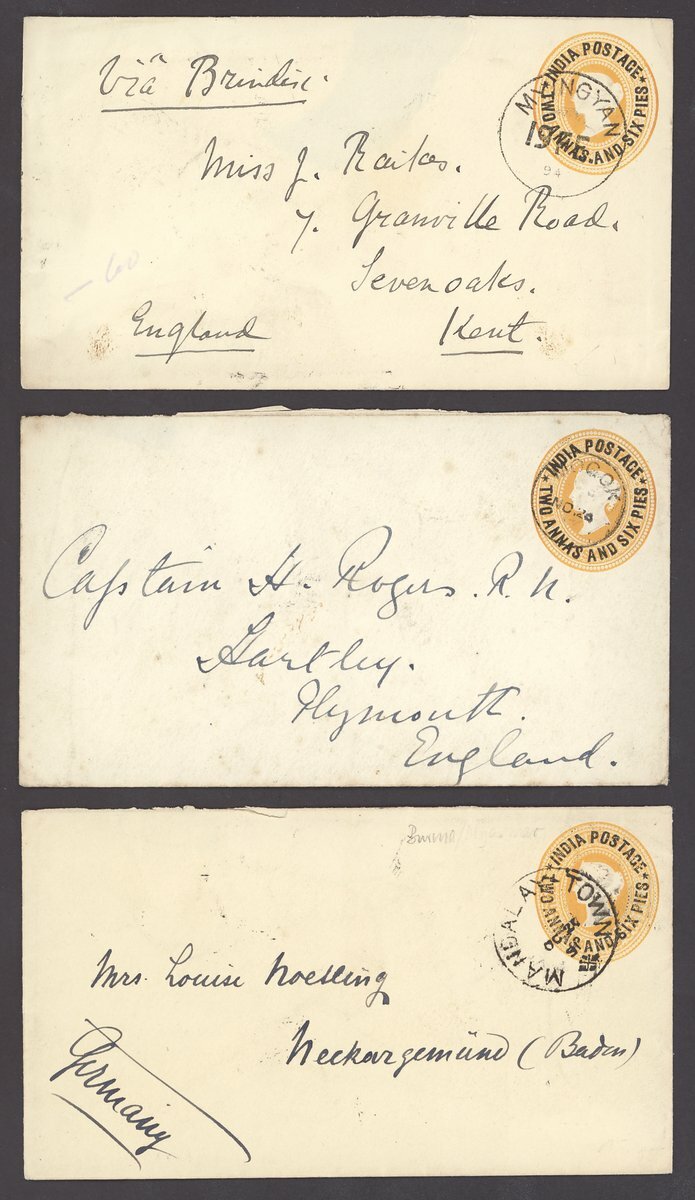 Viâ Brindisi.
INDIA POSTAGE
TWO ANNAS AND SIX PIES
MYINGYAN
94
Miss J. Raikes.
7. Granville Road.
Sevenoaks.
England
Kent.
INDIA POSTAGE
TWO ANNAS AND SIX PIES
NO.24
Captain H. Rogers. R.N.
Hartley.
Plymouth.
England.
Burma
INDIA POSTAGE
TWO ANNAS AND SIX PIES
MANDALAY TOWN
Mrs. Louise Noetling
Neckargemünd (Baden)
Germany